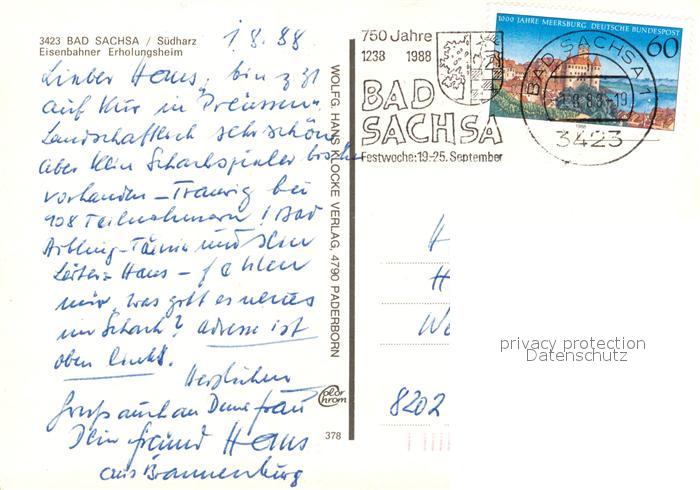 3423 BAD SACHSA / Südharz
Eisenbahner Erholungsheim
1.8.88
Lieber Hans, bin z.Zt
auf Kur in Preussen.
Landschaftlich sehr schön
aber kein Schachspieler bisher
vorhanden – Traurig bei
108 Teilnehmern! Bad
Aibling – und dem
Leiter = Hans – fehlen
mir, was gibt es neues
im Schach? Adresse ist
oben links.
Herzlichen
Gruß auch an Deine Frau
Dein Freund Hans
aus Brannenburg
WOLFG. HANS KLOCKE VERLAG, 4790 PADERBORN
color chrom
378
750 Jahre
1238 1988
BAD
SACHSA
Festwoche: 19.-25. September
1000 JAHRE MEERSBURG DEUTSCHE BUNDESPOST
60
BAD SACHSA 1
-1.8.88-19
3423
H
H
We
8202
privacy protection
Datenschutz